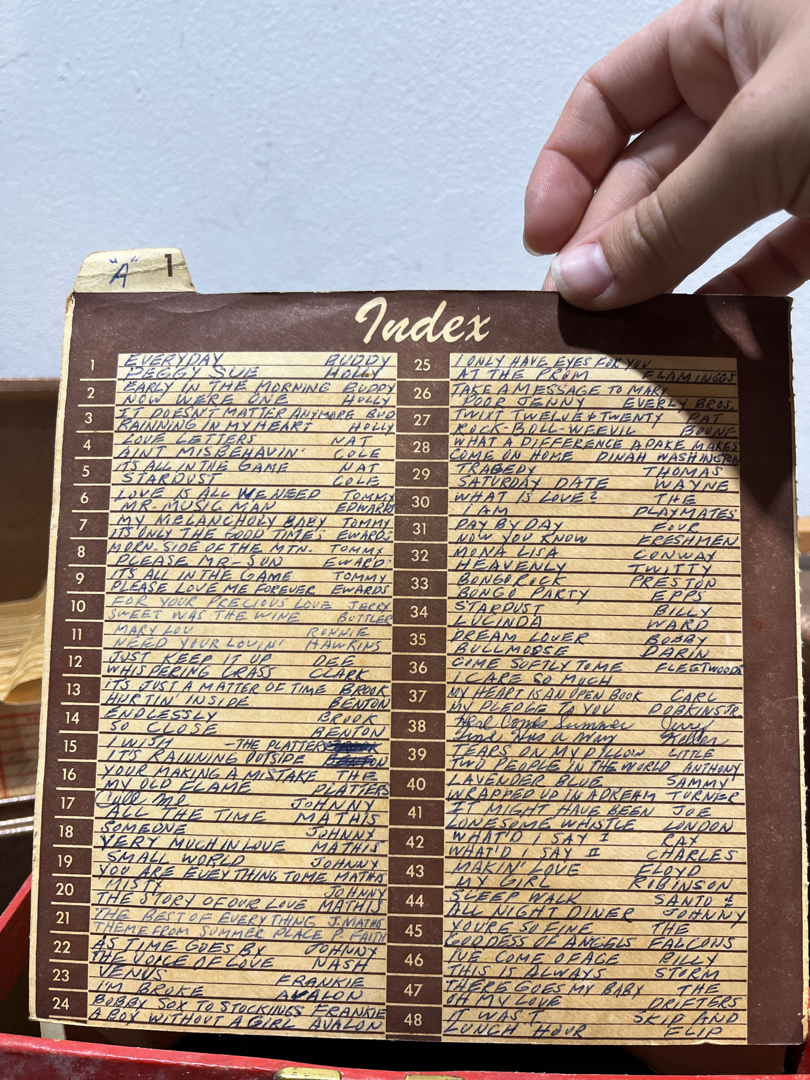 "A" 1
Index
1 EVERYDAY BUDDY
PEGGY SUE HOLLY
2 EARLY IN THE MORNING BUDDY
NOW WE'RE ONE HOLLY
3 IT DOESN'T MATTER ANYMORE BUD
RAINNING IN MY HEART HOLLY
4 LOVE LETTERS NAT
AINT MISBEHAVIN' COLE
5 ITS ALL IN THE GAME NAT
STARDUST COLE
6 LOVE IS ALL WE NEED TOMMY
MR. MUSIC MAN EDWARDS
7 MY MELANCHOLY BABY TOMMY
IT'S ONLY THE GOOD TIMES EWARDS
8 MORN. SIDE OF THE MTN. TOMMY
PLEASE MR-SUN EWARD
9 IT'S ALL IN THE GAME TOMMY
PLEASE LOVE ME FOREVER EWARDS
10 FOR YOUR PRECIOUS LOVE JERRY
SWEET WAS THE WINE BUTTLER
11 MARY LOU RONNIE
NEED YOUR LOVIN' HAWKINS
12 JUST KEEP IT UP DEE
WHISPERING GRASS CLARK
13 IT'S JUST A MATTER OF TIME BROOK
HURTIN INSIDE BENTON
14 ENDLESSLY BROOK
SO CLOSE BENTON
15 I WISH -THE PLATTERS
IT'S RAINNING OUTSIDE
16 YOUR MAKING A MISTAKE THE
MY OLD FLAME PLATTERS
17 Call Me JOHNNY
ALL THE TIME MATHIS
18 SOMEONE JOHNNY
VERY MUCH IN LOVE MATHIS
19 SMALL WORLD JOHNNY
YOU ARE EVEY THING TO ME MATHIS
20 MISTY JOHNNY
THE STORY OF OUR LOVE MATHIS
21 THE BEST OF EVERYTHING J. MATHIS
THEME FROM SUMMER PLACE P. FAITH
22 AS TIME GOES BY JOHNNY
THE VOICE OF LOVE NASH
23 VENUS FRANKIE
I'M BROKE AVALON
24 BOBBY SOX TO STOCKINGS FRANKIE
A BOY WITHOUT A GIRL AVALON
25 I ONLY HAVE EYES FOR YOU
AT THE PROM FLAMINGOS
26 TAKE A MESSAGE TO MARY
POOR JENNY EVERLY BROS.
27 TWIXT TWELVE & TWENTY PAT
ROCK-BOLL-WEEVIL BOONE
28 WHAT A DIFFERENCE A DAKE MAKES
COME ON HOME DINAH WASHINGTON
29 TRAGEDY THOMAS
SATURDAY DATE WAYNE
30 WHAT IS LOVE? THE
I AM PLAYMATES
31 DAY BY DAY FOUR
NOW YOU KNOW FRESHMEN
32 MONA LISA CONWAY
HEAVENLY TWITTY
33 BONGO ROCK PRESTON
BONGO PARTY EPPS
34 STARDUST BILLY
LUCINDA WARD
35 DREAM LOVER BOBBY
BULLMOOSE DARIN
36 COME SOFTLY TO ME FLEETWOODS
I CARE SO MUCH
37 MY HEART IS AN OPEN BOOK CARL
MY PLEDGE TO YOU DOBKINS JR.
38 Here Comes Summer Jerry
Was a Keller
39 TEARS ON MY PILLOW LITTLE
TWO PEOPLE IN THE WORLD ANTHONY
40 LAVENDER BLUE SAMMY
WRAPPED UP IN A DREAM TURNER
41 IT MIGHT HAVE BEEN JOE
LONESOME WHISTLE LONDON
42 WHAT'D I SAY I RAY
WHAT'D I SAY II CHARLES
43 MAKIN' LOVE FLOYD
MY GIRL ROBINSON
44 SLEEP WALK SANTO &
ALL NIGHT DINER JOHNNY
45 YOU'RE SO FINE THE
GODDESS OF ANGELS FALCONS
46 I'VE COME OF AGE BILLY
THIS IS ALWAYS STORM
47 THERE GOES MY BABY THE
OH MY LOVE DRIFTERS
48 IT WAS I SKIP AND
LUNCH HOUR FLIP